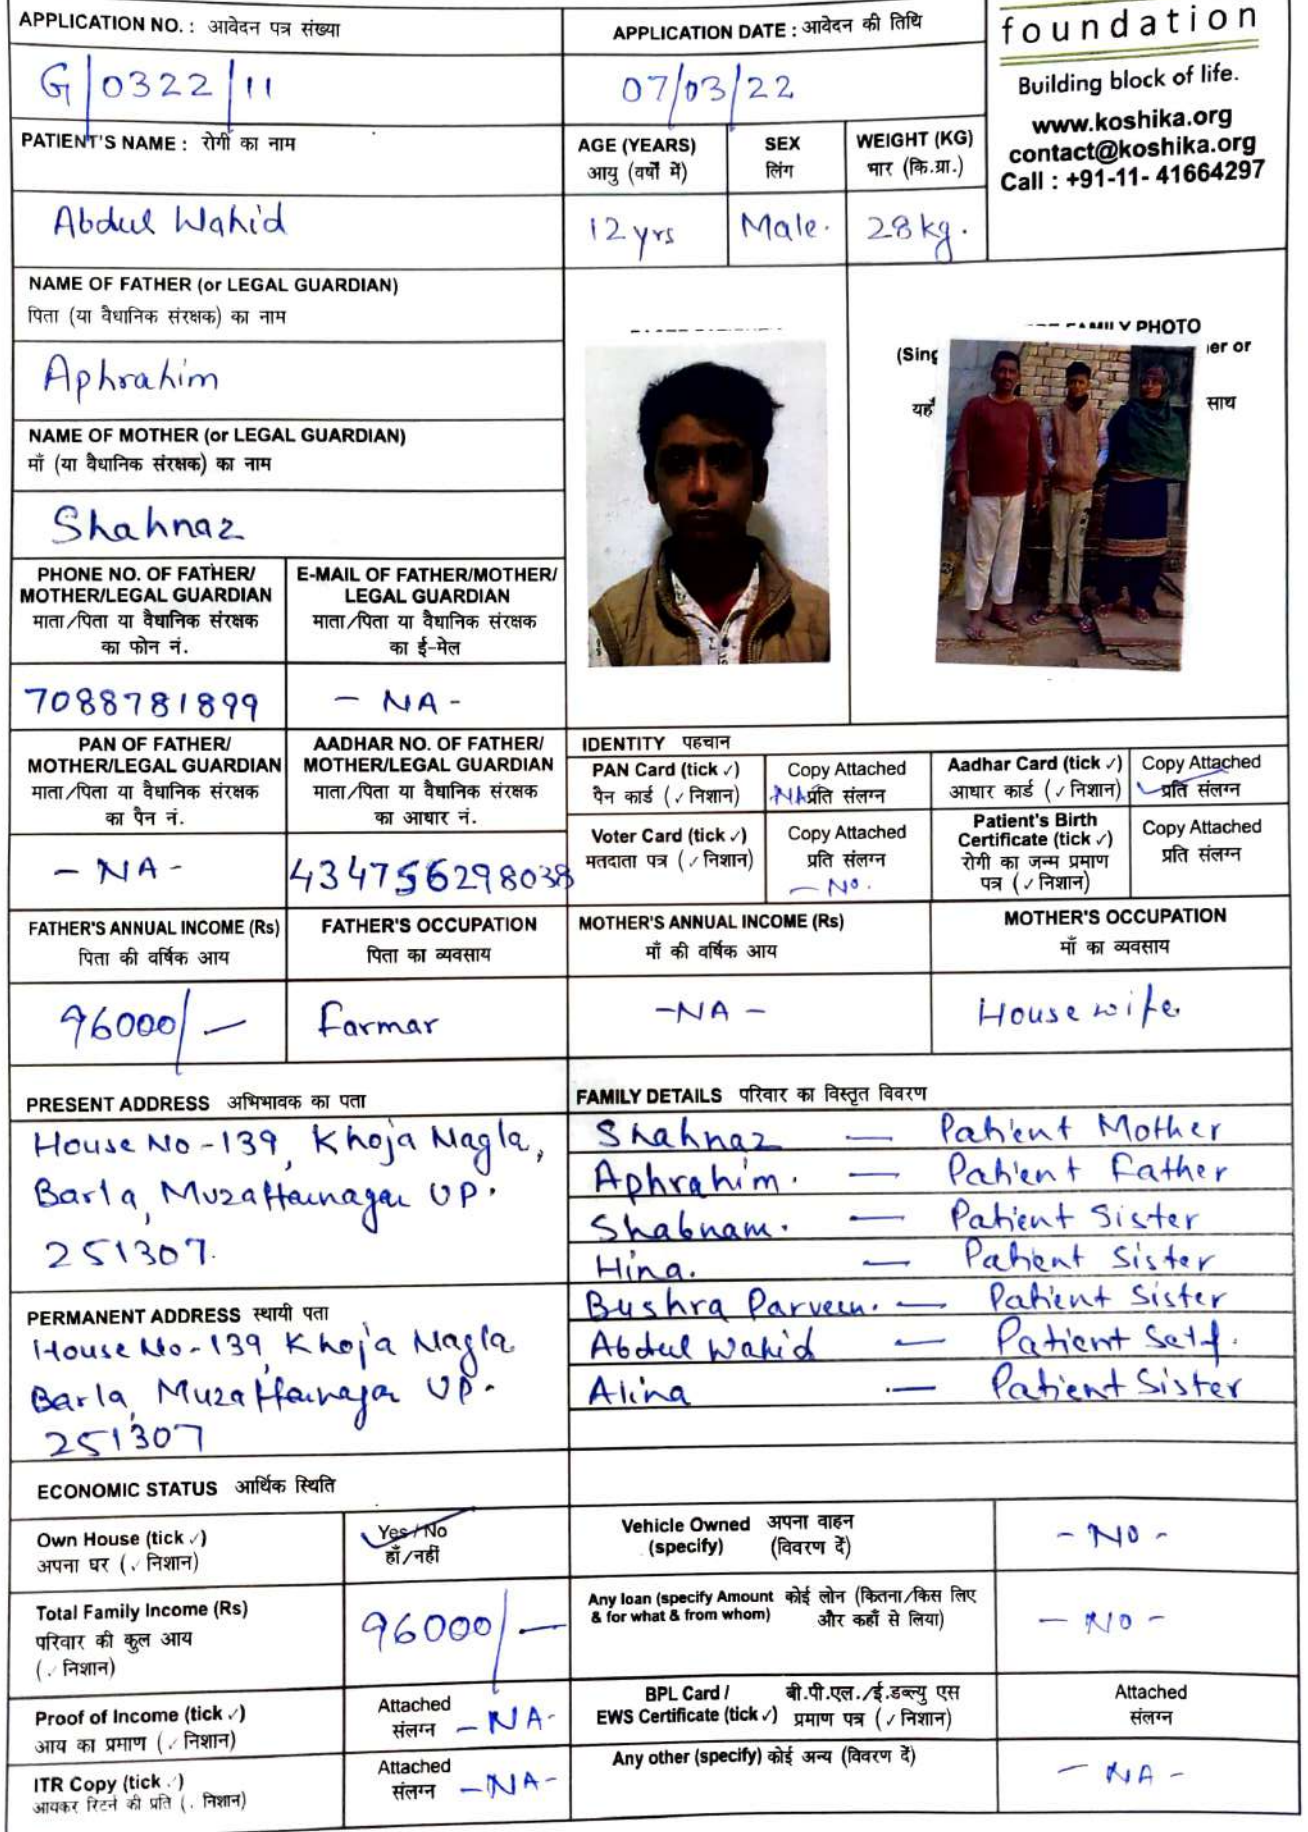 foundation
Building block of life.
www.koshika.org
contact@koshika.org
Call : +91-11- 41664297
APPLICATION NO. : आवेदन पत्र संख्या
G/0322/11
APPLICATION DATE : आवेदन की तिथि
07/03/22
PATIENT'S NAME : रोगी का नाम
Abdul Wahid
AGE (YEARS)
आयु (वर्षों में)
12 yrs
SEX
लिंग
Male.
WEIGHT (KG)
भार (कि.ग्रा.)
28 kg.
NAME OF FATHER (or LEGAL GUARDIAN)
पिता (या वैधानिक संरक्षक) का नाम
Aphrahim
NAME OF MOTHER (or LEGAL GUARDIAN)
माँ (या वैधानिक संरक्षक) का नाम
Shahnaz
FAMILY PHOTO
(Sing
er or
यहाँ
साथ
PHONE NO. OF FATHER/
MOTHER/LEGAL GUARDIAN
माता/पिता या वैधानिक संरक्षक
का फोन नं.
7088781899
E-MAIL OF FATHER/MOTHER/
LEGAL GUARDIAN
माता/पिता या वैधानिक संरक्षक
का ई-मेल
- NA -
PAN OF FATHER/
MOTHER/LEGAL GUARDIAN
माता/पिता या वैधानिक संरक्षक
का पैन नं.
- NA -
AADHAR NO. OF FATHER/
MOTHER/LEGAL GUARDIAN
माता/पिता या वैधानिक संरक्षक
का आधार नं.
434756298038
IDENTITY पहचान
PAN Card (tick ✓)
पैन कार्ड (✓ निशान)
Copy Attached
NA प्रति संलग्न
Aadhar Card (tick ✓)
आधार कार्ड (✓ निशान)
Copy Attached
✓ प्रति संलग्न
Voter Card (tick ✓)
मतदाता पत्र (✓ निशान)
Copy Attached
प्रति संलग्न
- No.
Patient's Birth
Certificate (tick ✓)
रोगी का जन्म प्रमाण
पत्र (✓ निशान)
Copy Attached
प्रति संलग्न
FATHER'S ANNUAL INCOME (Rs)
पिता की वार्षिक आय
96000/-
FATHER'S OCCUPATION
पिता का व्यवसाय
Farmar
MOTHER'S ANNUAL INCOME (Rs)
माँ की वर्षिक आय
- NA -
MOTHER'S OCCUPATION
माँ का व्यवसाय
House wife
PRESENT ADDRESS अभिभावक का पता
House No - 139, Khoja Nagla,
Barla, Muzaffarnagar UP.
251307.
PERMANENT ADDRESS स्थायी पता
House No - 139, Khoja Nagla
Barla, Muzaffarnagar UP.
251307
FAMILY DETAILS परिवार का विस्तृत विवरण
Shahnaz — Patient Mother
Aphrahim. — Patient Father
Shabnam. — Patient Sister
Hina. — Patient Sister
Bushra Parveen. — Patient Sister
Abdul Wahid — Patient Self.
Alina — Patient Sister
ECONOMIC STATUS आर्थिक स्थिति
Own House (tick ✓)
अपना घर (✓ निशान)
Yes/No
हाँ/नहीं
Vehicle Owned अपना वाहन
(specify) (विवरण दें)
- NO -
Total Family Income (Rs)
परिवार की कुल आय
(✓ निशान)
96000/-
Any loan (specify Amount कोई लोन (कितना/किस लिए
& for what & from whom) और कहाँ से लिया)
- NO -
Proof of Income (tick ✓)
आय का प्रमाण (✓ निशान)
Attached
संलग्न - NA -
BPL Card / बी.पी.एल./ई.डब्ल्यु एस
EWS Certificate (tick ✓) प्रमाण पत्र (✓ निशान)
Attached
संलग्न
ITR Copy (tick ✓)
आयकर रिटर्न की प्रति (✓ निशान)
Attached
संलग्न - NA -
Any other (specify) कोई अन्य (विवरण दें)
- NA -